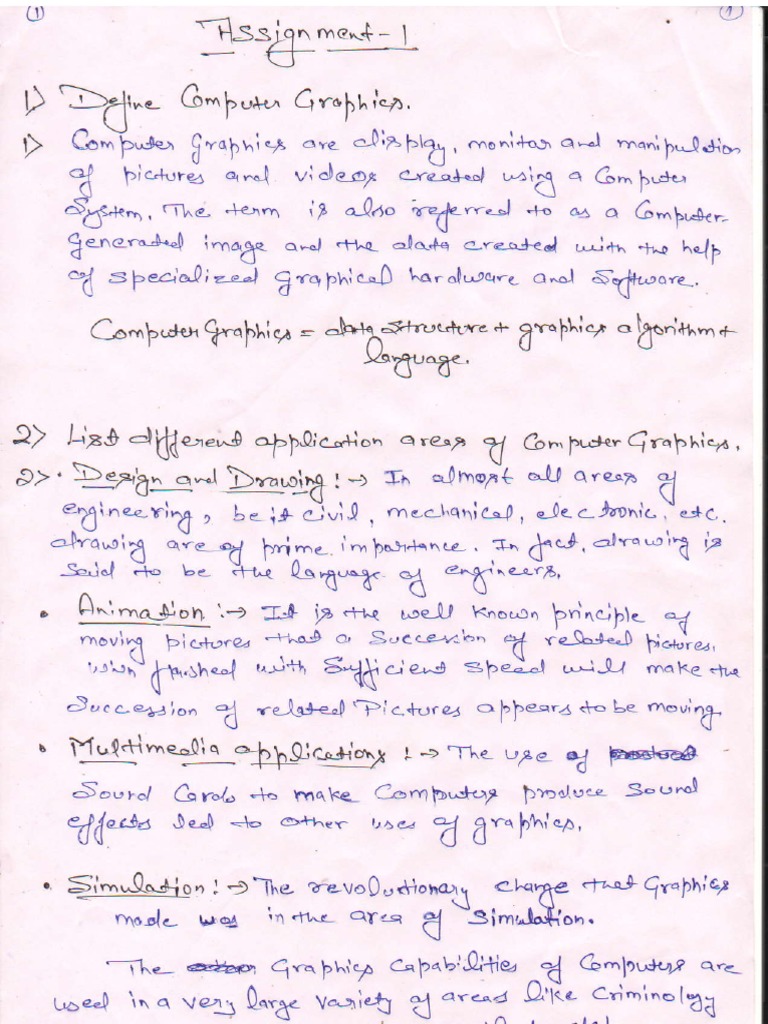 1 1
Assignment-1
1> Define Computer Graphics.
1> Computer Graphics are display, monitor and manipulation
of pictures and videos created using a Computer
System. The term is also referred to as a Computer-
generated image and the data created with the help
of specialized graphical hardware and Software.
Computer Graphics = data structure + graphics algorithm +
language.
2> List different application areas of Computer Graphics.
2> • Design and Drawing :→ In almost all areas of
engineering, be it civil, mechanical, electronic, etc.
drawing are of prime importance. In fact, drawing is
said to be the language of engineers.
• Animation :→ It is the well known principle of
moving pictures that a Succession of related pictures.
with Sufficient Speed will make the
Succession of related Pictures appears to be moving
• Multimedia applications :→ The use of
Sound Cards to make Computers produce Sound
effects led to other uses of graphics.
• Simulation :→ The revolutionary change that Graphics
made was in the area of Simulation.
The Graphics Capabilities of Computers are
used in a very large variety of areas like Criminology